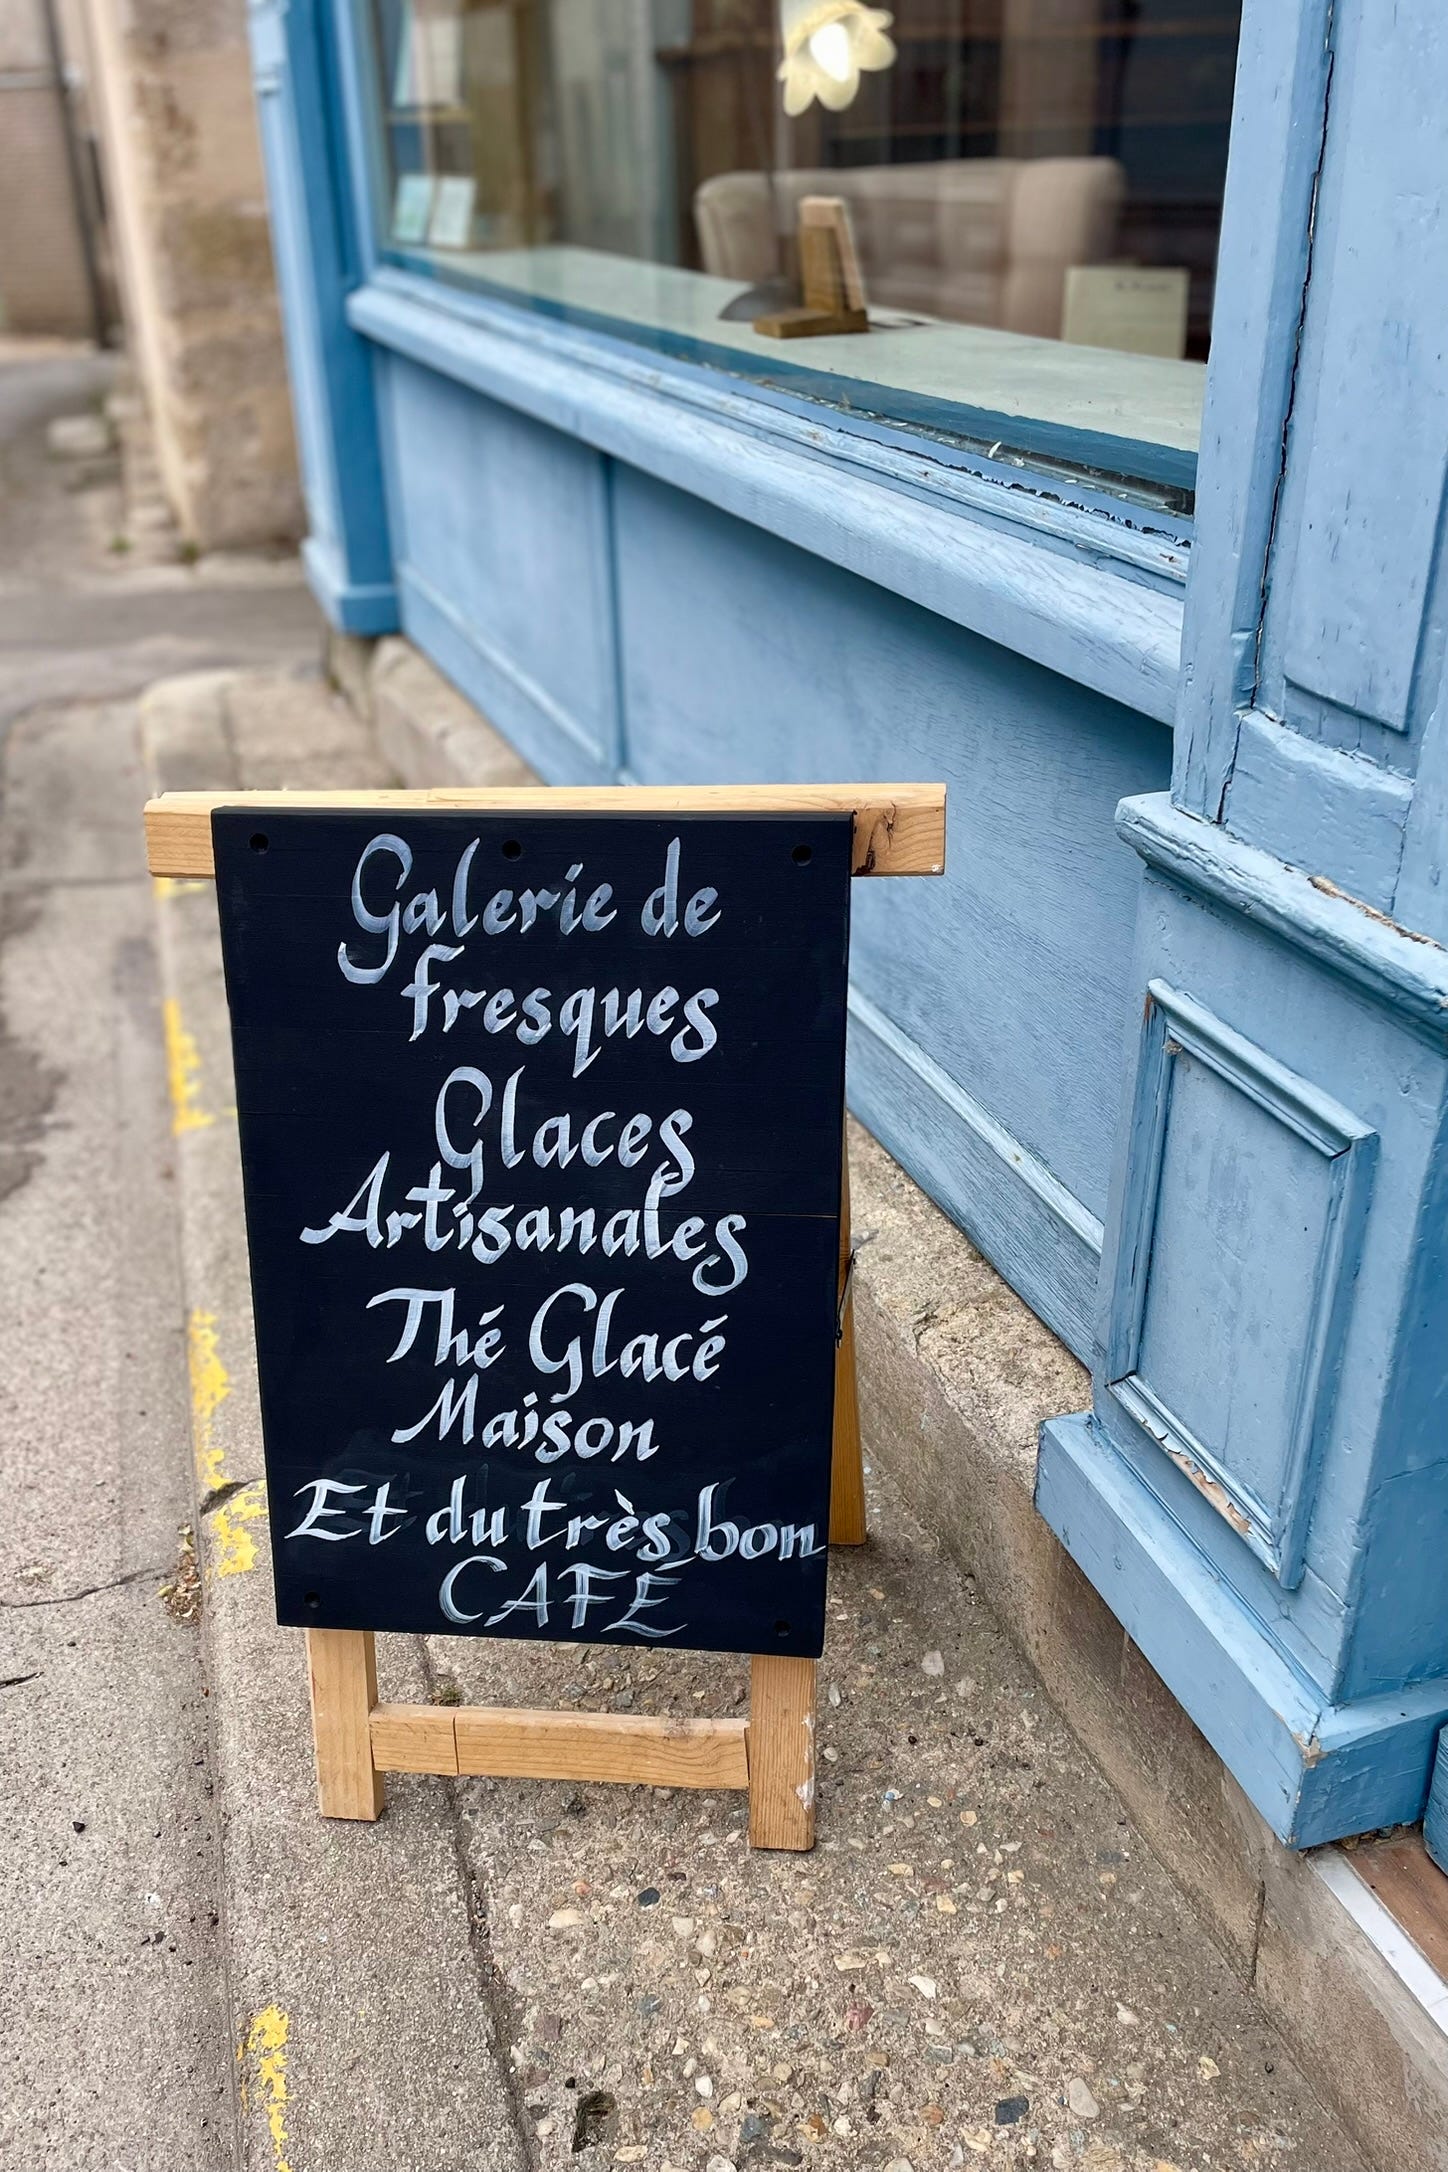 Galerie de
fresques
Glaces
Artisanales
Thé Glacé
Maison
Et du très bon
CAFÉ